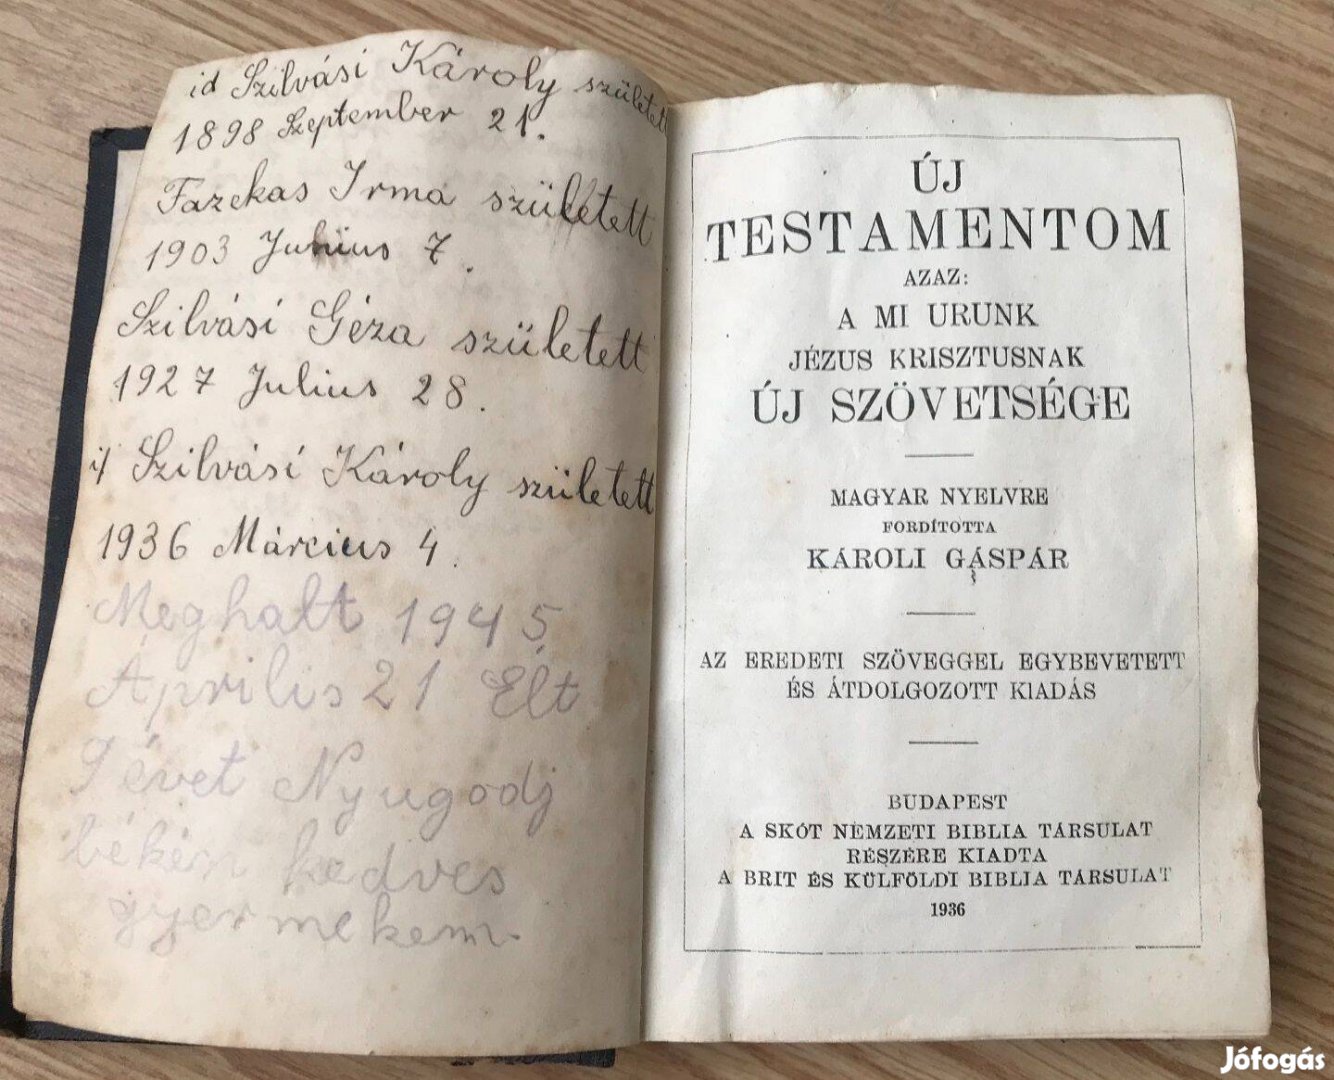 id Szilvási Károly született
1898 Szeptember 21.
Fazekas Irma született
1903 Junius 7.
Szilvási Géza született
1927 Julius 28.
if Szilvási Károly született
1936 Március 4.
Meghalt 1945
Április 21 Élt
9 évet Nyugodj
békén kedves
gyermekem.
ÚJ
TESTAMENTOM
AZAZ:
A MI URUNK
JÉZUS KRISZTUSNAK
ÚJ SZÖVETSÉGE
MAGYAR NYELVRE
FORDÍTOTTA
KÁROLI GÁSPÁR
AZ EREDETI SZÖVEGGEL EGYBEVETETT
ÉS ÁTDOLGOZOTT KIADÁS
BUDAPEST
A SKÓT NEMZETI BIBLIA TÁRSULAT
RÉSZÉRE KIADTA
A BRIT ÉS KÜLFÖLDI BIBLIA TÁRSULAT
1936
Jófogás